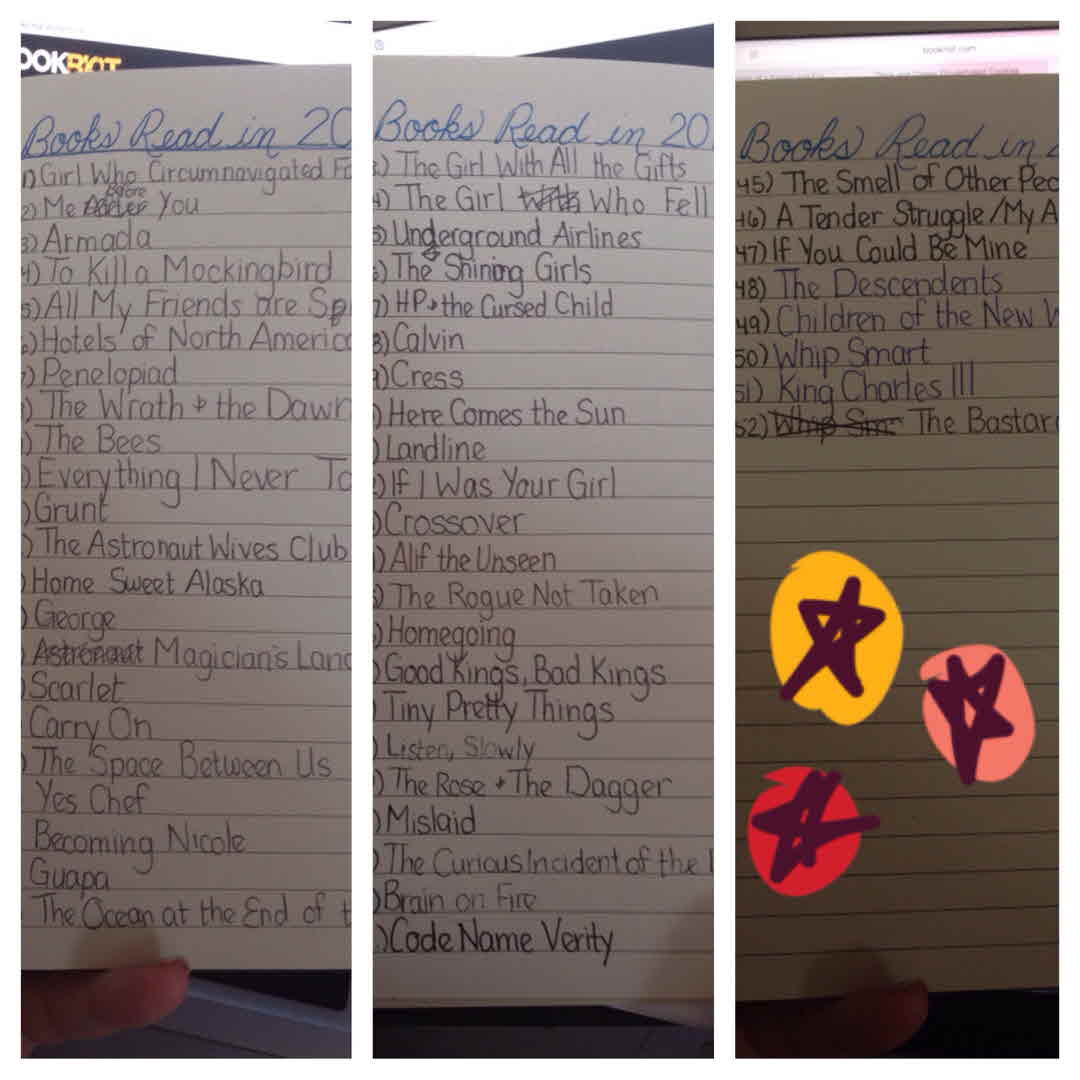 OOKRIOT
Books Read in 20
1) Girl Who Circumnavigated Fa
before
2) Me After You
3) Armada
4) To Kill a Mockingbird
5) All My Friends are Sp
) Hotels of North America
) Penelopiad
) The Wrath & the Dawn
) The Bees
) Everything I Never To
) Grunt
) The Astronaut Wives Club
) Home Sweet Alaska
) George
) Astronaut Magician's Land
) Scarlet
Carry On
) The Space Between Us
Yes Chef
Becoming Nicole
Guapa
The Ocean at the End of t
Books Read in 20
) The Girl With All the Gifts
4) The Girl With Who Fell
5) Underground Airlines
) The Shining Girls
7) HP & the Cursed Child
8) Calvin
9) Cress
) Here Comes the Sun
) Landline
) If I Was Your Girl
) Crossover
) Alif the Unseen
) The Rogue Not Taken
) Homegoing
) Good Kings, Bad Kings
) Tiny Pretty Things
) Listen, Slowly
) The Rose & The Dagger
) Mislaid
) The Curious Incident of the
) Brain on Fire
) Code Name Verity
bookriot.com
Books Read in 2
45) The Smell of Other Peo
46) A Tender Struggle/My A
47) If You Could Be Mine
48) The Descendents
49) Children of the New W
50) Whip Smart
51) King Charles III
52) Whip Smar The Bastar